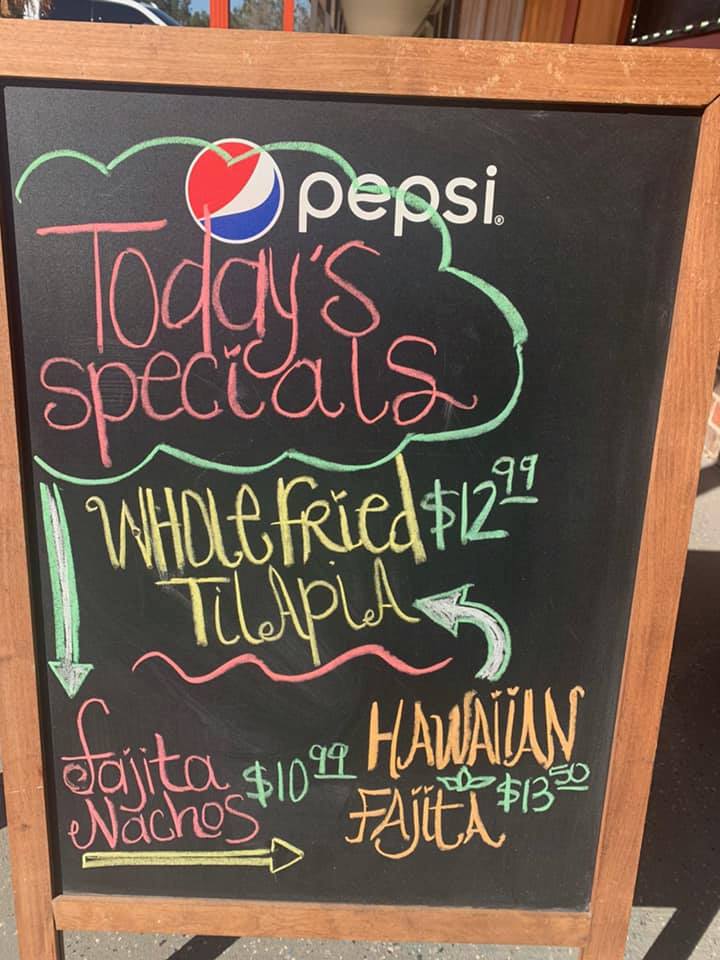 pepsi
Today's
specials
WHOLE FRied $12.99
TiLApiA
fajita
Nachos $10.99
HAWAiiAN
FAjitA $13.50